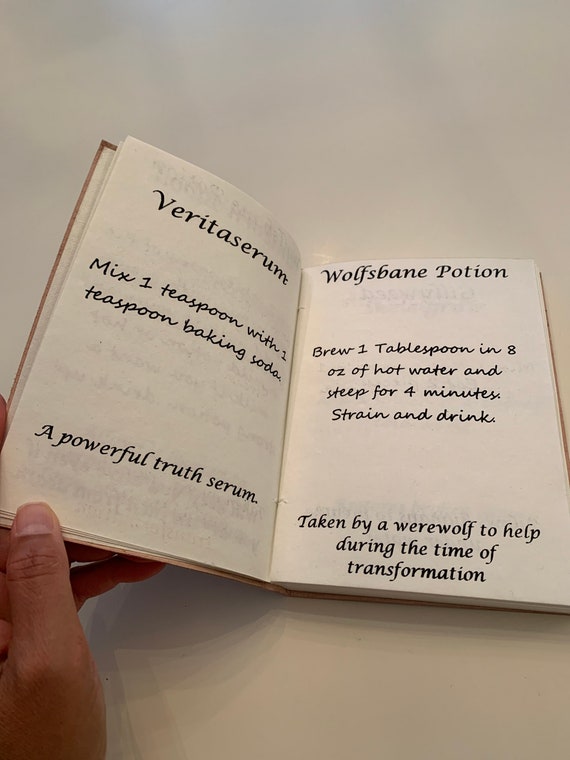 Veritaserum
Mix 1 teaspoon with 1
teaspoon baking soda.
A powerful truth serum.
Wolfsbane Potion
Brew 1 Tablespoon in 8
oz of hot water and
steep for 4 minutes.
Strain and drink.
Taken by a werewolf to help
during the time of
transformation